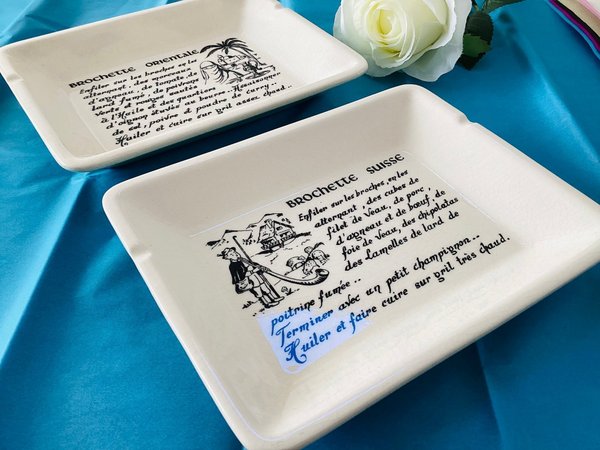 BROCHETTE ORIENTALE
Enfiler sur les broches en les
alternant, des morceaux
d'agneau, de tomate de
lard fumé, de poivrons
verts et rouges sautés
à l'huile et des quartiers
d'oignon étuvés au beurre. Assaisonner
de sel, poivre et poudre de curry..
Huiler et cuire sur gril assez chaud..
BROCHETTE SUISSE
Enfiler sur les broches, en les
alternant, des cubes de
filet de veau, de porc,
d'agneau et de bœuf, de
foie de veau, des chipolatas
des lamelles de lard de
poitrine fumée..
Terminer avec un petit champignon..
Huiler et faire cuire sur gril très chaud.